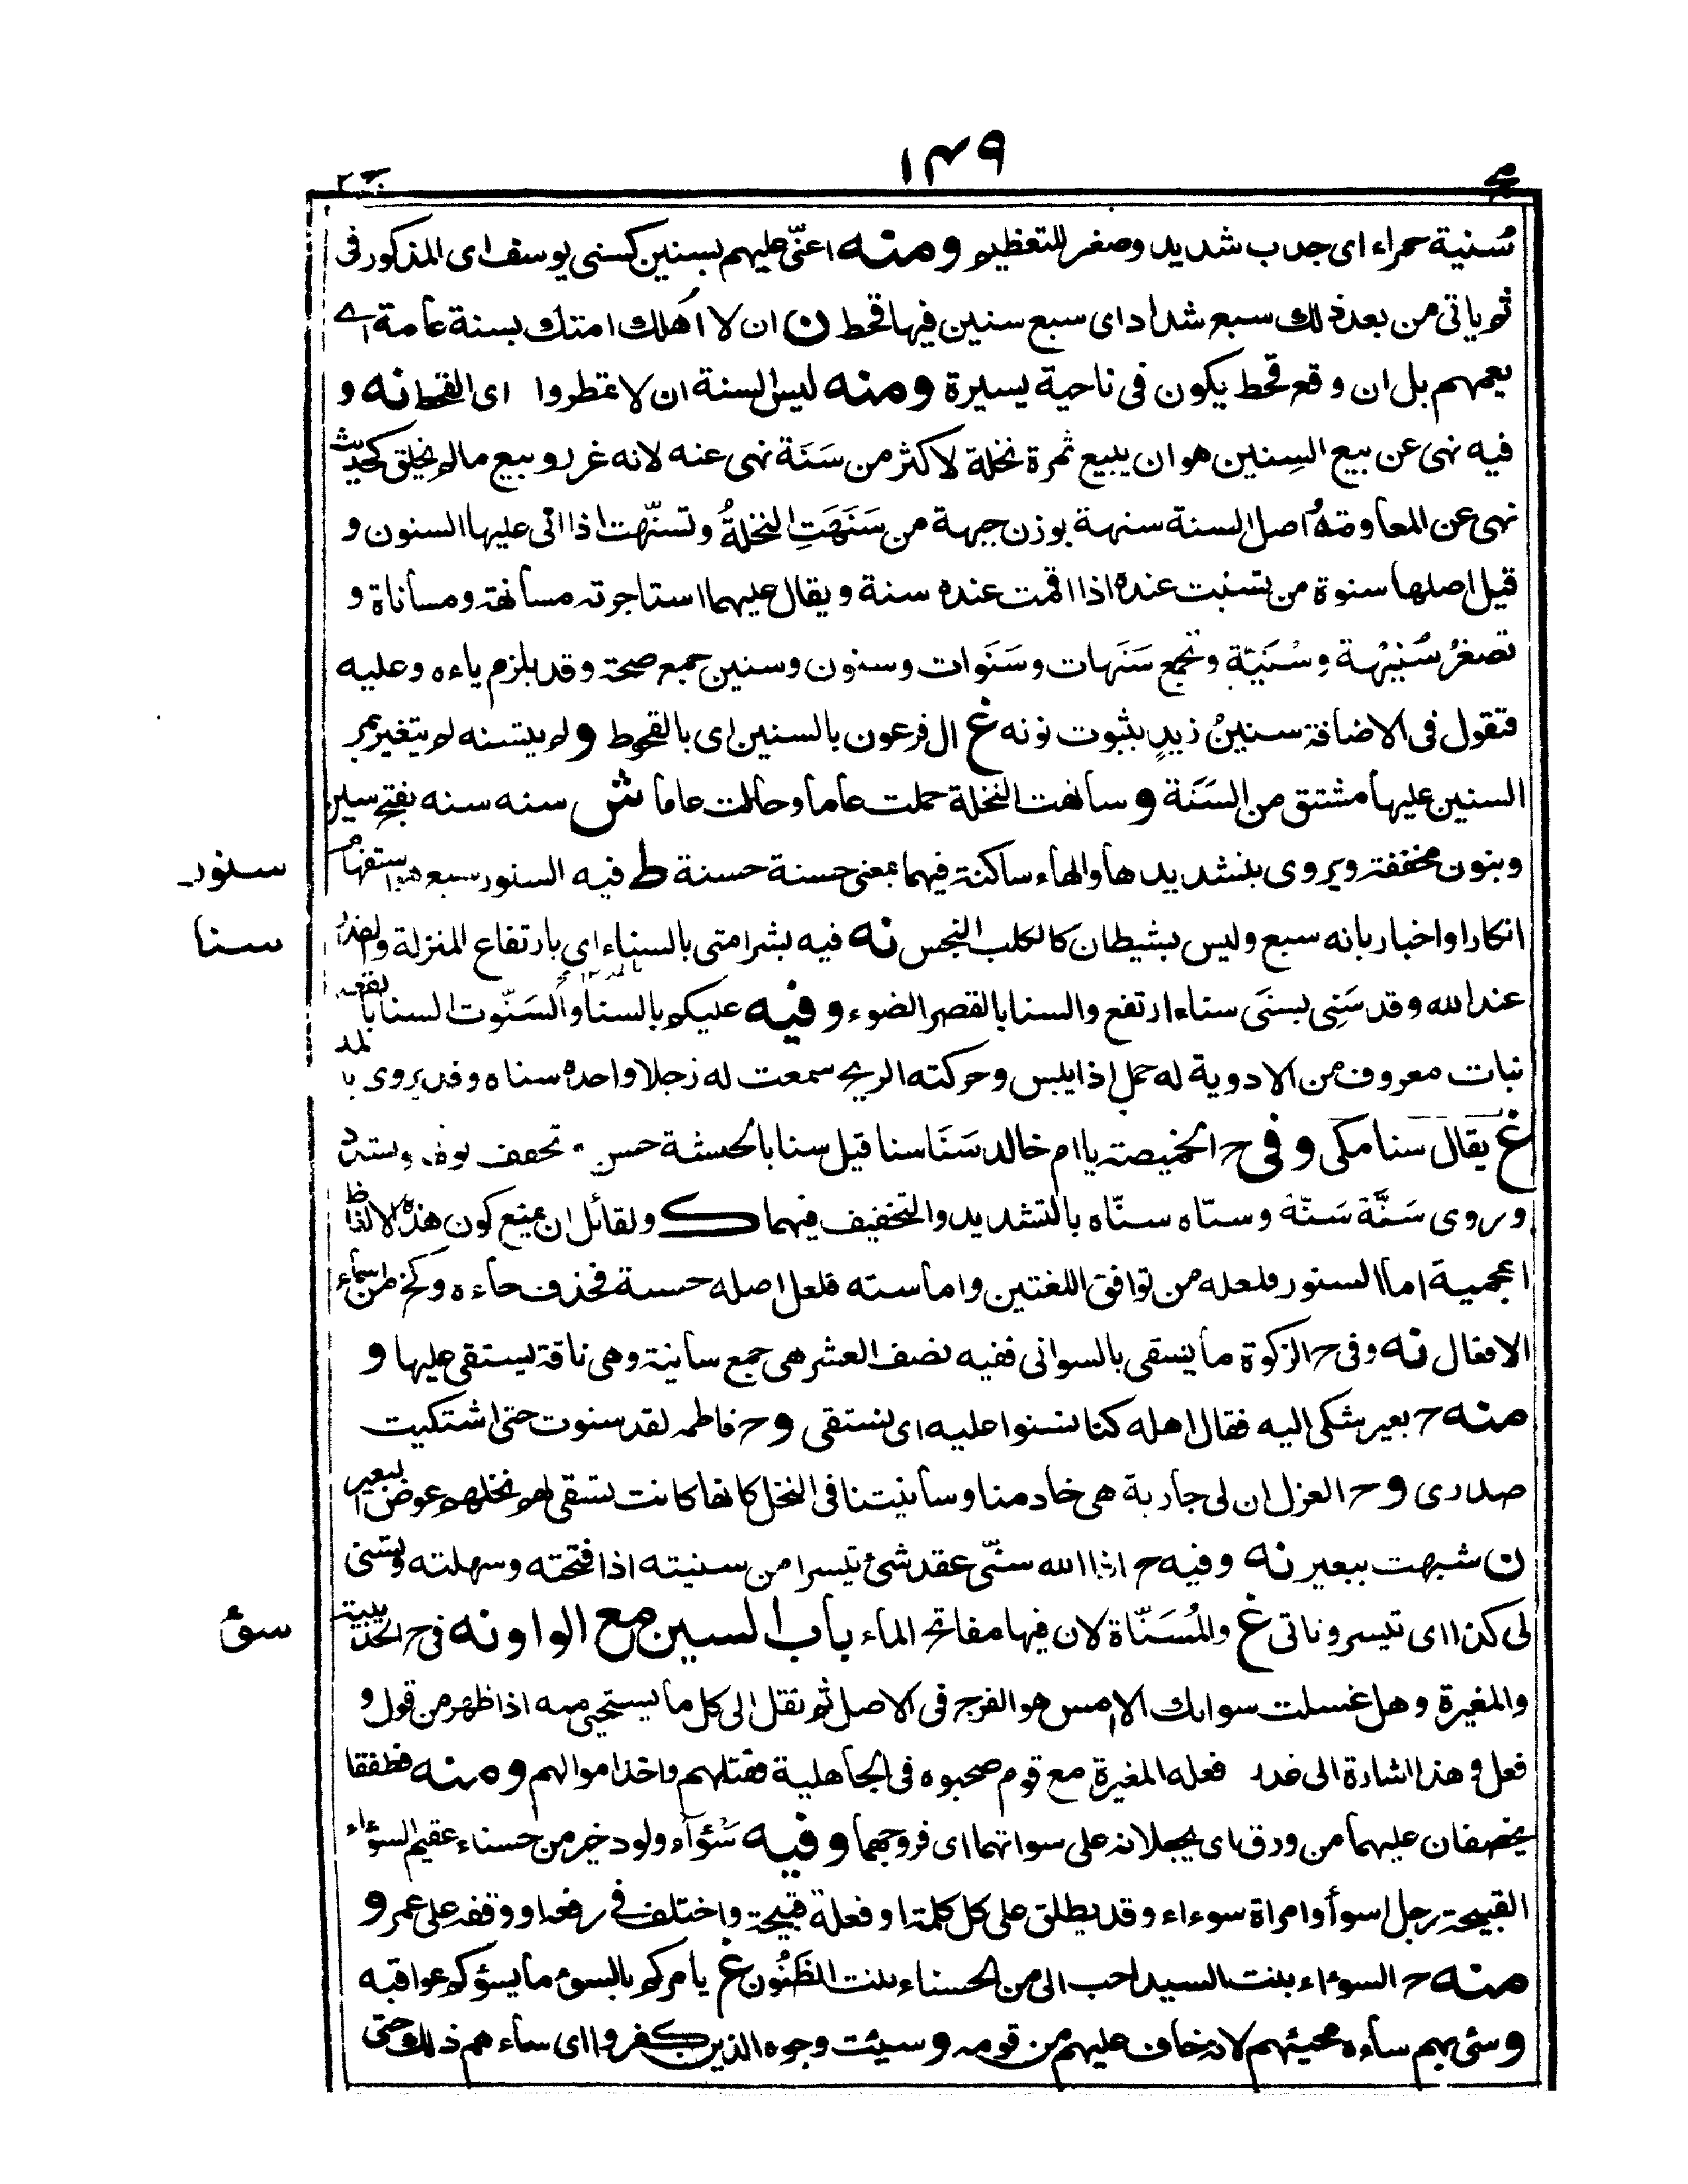 ١٤٩
سُنية حمراء اى جدب شديد وصغر للتعظيم ومنه اعنّى عليهم بسنين كسنى يوسف اى المذكور فى
ثم ياتى من بعد ذلك سبع شداد اى سبع سنين فيها قحط ن ان لا اُهلك امتك بسنة عامة اے
يعمهم بل ان وقع قحط يكون فى ناحية يسيرة ومنه ليس السنة ان لا تمطروا اى القحط نه و
فيه نهى عن بيع السِنين هو ان يبيع ثمرة نخلة لاكثر من سَنَة نهى عنه لانه غرر وبيع مالم يخلق كحديث
نهى عن المعاومة اصل السنة سنهة بوزن جبهة من سَنَهَتِ النخلةُ وتسنّهت اذا اتى عليها السنون و
قيل اصلها سنوة من تسنيت عنده اذا اقمت عنده سنة ويقال عليهما استاجرته مسانهة ومساناة و
تصغرُ سُنَيْهة و سُنَيّة وتجمع سَنَهات وسَنَوات وسنون وسنين جمع صحة وقد يلزم ياءه وعليه
فتقول فى الاضافة سنينُ زيدٍ بثبوت نونه غ ال فرعون بالسنين اى بالقحوط ولم يتسنه لم يتغير بمر
السنين عليها مشتق من السَنَة و سانهت النخلة حملت عاما وحالت عاما ش سنه سنه بفتح سين
وبنون مخففة ويروى بتشديدها والهاء ساكنة فيهما بمعنى حسنة حسنة ط فيه السنور سبع استفهام
سنور
انكارا واخبار بانه سبع وليس بشيطان كالكلب النجس نه فيه بشر امتى بالسناء اى بارتفاع المنزلة والقدر
سنا
عند الله وقد سَنِى يسنَى سناء ارتفع والسنا بالقصر الضوء وفيه عليكم بالسنا والسَنّوت السنا بالقصر
نبات معروف من الادوية له حمل اذا يبس وحركته الريح سمعت له زجلا واحده سناه وقد يروى بالمد
غ يقال سنا مكى وفى ح الخميصة يا ام خالد سَنَا سنا قيل سنا بالحبشة حسن تخفف نونه وتشدد
ويروى سَنَّة سَنّة وسنّاه سنّاه بالتشديد والتخفيف فيهما ك ولقائل ان يمنع كون هذه الالفاظ
اعجمية اما السنور فلعله من توافق اللغتين واما سنه فلعل اصله حسنة فحذف حاءه وكخ من اسماء
الافعال نه وفى ح الزكوة ما يسقى بالسوانى ففيه نصف العشر هى جمع سانية وهى ناقة يستقى عليها و
منه ح بعير شكى اليه فقال اهله كنا نسنوا عليه اى نستقى و ح فاطمه لقد سنوت حتى اشتكيت
صدرى و ح العزل ان لى جارية هى خادمنا وسانيتنا فى النخل كانها كانت تسقى لهم نخلهم عوض البعير
ن شبهت ببعير نه وفيه ح اذا الله سنّى عقد شئ تيسرا من سنيته اذا فتحته وسهلته وتسنى
لى كذا اى تيسر وتاتى غ والمُسَنّاة لان فيها مفاتح الماء باب السين مع الواو نه فى ح الحديبية
سوٴ
والمغيرة وهل غسلت سواتك الا امس هو الفرج فى الاصل ثم نقل الى كل ما يستحيى منه اذا ظهر من قول و
فعل و هذا اشارة الى غدر فعله المغيرة مع قوم صحبوه فى الجاهلية فقتلهم واخذ اموالهم ومنه فطفقا
يخصفان عليهما من ورق اى يجعلانه على سواتهما اى فروجهما وفيه سَوْاء ولود خير من حسناء عقيم السواء
القبيحة رجل اسوأ وامراة سوءاء وقد يطلق على كل كلمة او فعلة قبيحة واختلف فى رفعه او وقفه على عمر و
منه ح السوءاء بنت السيد احب الى من الحسناء بنت الظَنُون غ يامركم بالسوء ما يسؤكم عواقبه
و سئ بهم ساءه مجيئهم لانه خاف عليهم من قومه و سيئت وجوه الذين كفروا اى ساءهم ذلك حتى